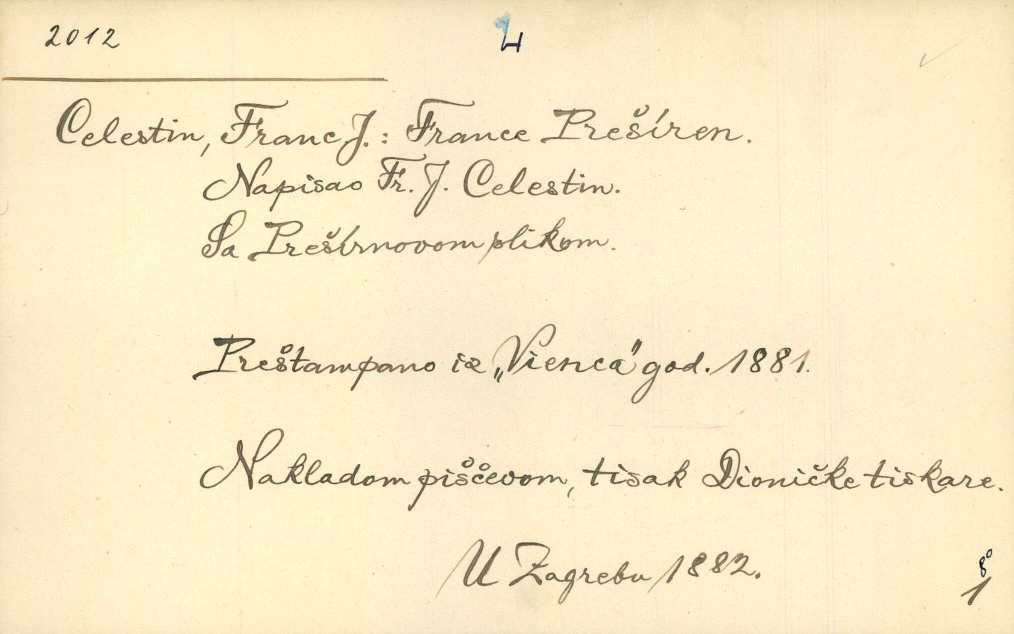 2012
4
Celestin, Franc J.: France Prešíren.
Napisao Fr. J. Celestin.
Sa Prešírnovom slikom.
Preštampano iz „Vienca" god. 1881.
Nakladom piščevom, tisak Dioničke tiskare.
U Zagrebu 1882.
8°
1